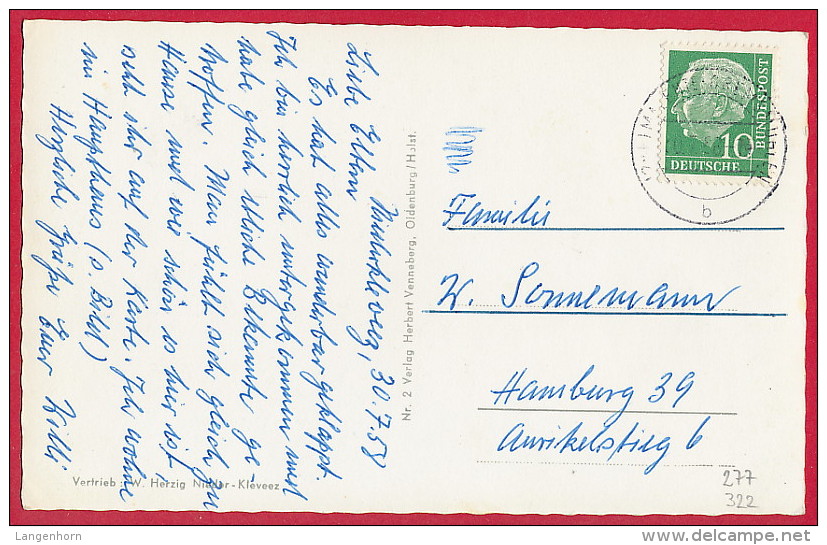 Niederkleveez, 30.7.58
Liebe Eltern
Es hat alles wunderbar geklappt.
Ich bin herrlich untergekommen und
habe gleich etliche Bekannte ge
troffen. Man fühlt sich gleich zu
Hause und wie schön es hier ist,
seht ihr auf der Karte. Ich wohne
im Haupthaus (s. Bild)
Herzliche Grüße Euer Willi
Vertrieb: W. Herzig Nieder-Kleveez
Nr. 2 Verlag Herbert Venneberg, Oldenburg/Holst.
DEUTSCHE
BUNDESPOST
10
b
Familie
W. Sonnemann
Hamburg 39
Aurikelstieg 6
277
322
Langenhorn
www.delcampe.net